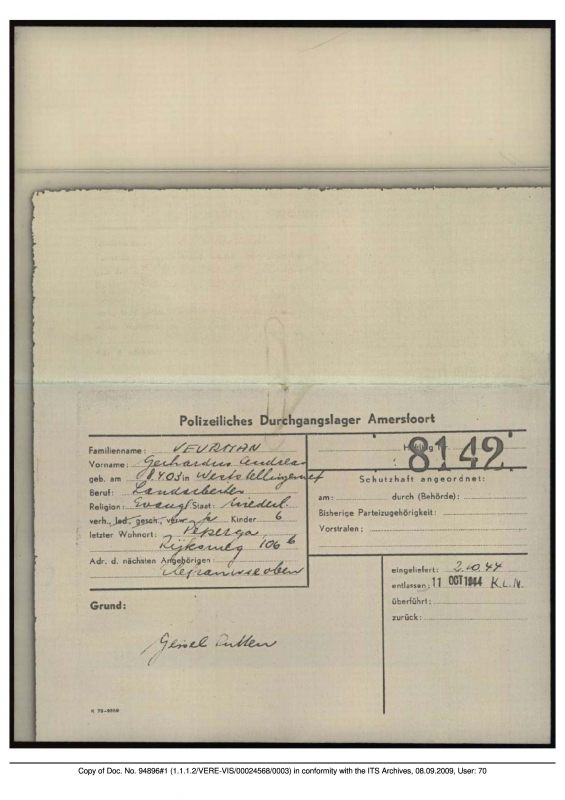 Polizeiliches Durchgangslager Amersfoort
Familienname: VEURMAN
Vorname: Gerhardus Andreas
geb. am 08.403 in Weststellingwerf
Beruf: Landarbeiter
Religion: Evang. Staat: Niederl.
verh., led., gesch., verw. Kinder 6
letzter Wohnort: Peperga
Rijksweg 106 b
Adr. d. nächsten Angehörigen
oben
Häftling Nr. 8142
Schutzhaft angeordnet:
am: durch (Behörde):
Bisherige Parteizugehörigkeit:
Vorstrafen:
eingeliefert: 2.10.44
entlassen: 11 OCT 1944 K.L.N.
überführt:
zurück:
Grund:
K 73-9859
Copy of Doc. No. 94896#1 (1.1.1.2/VERE-VIS/00024568/0003) in conformity with the ITS Archives, 08.09.2009, User: 70